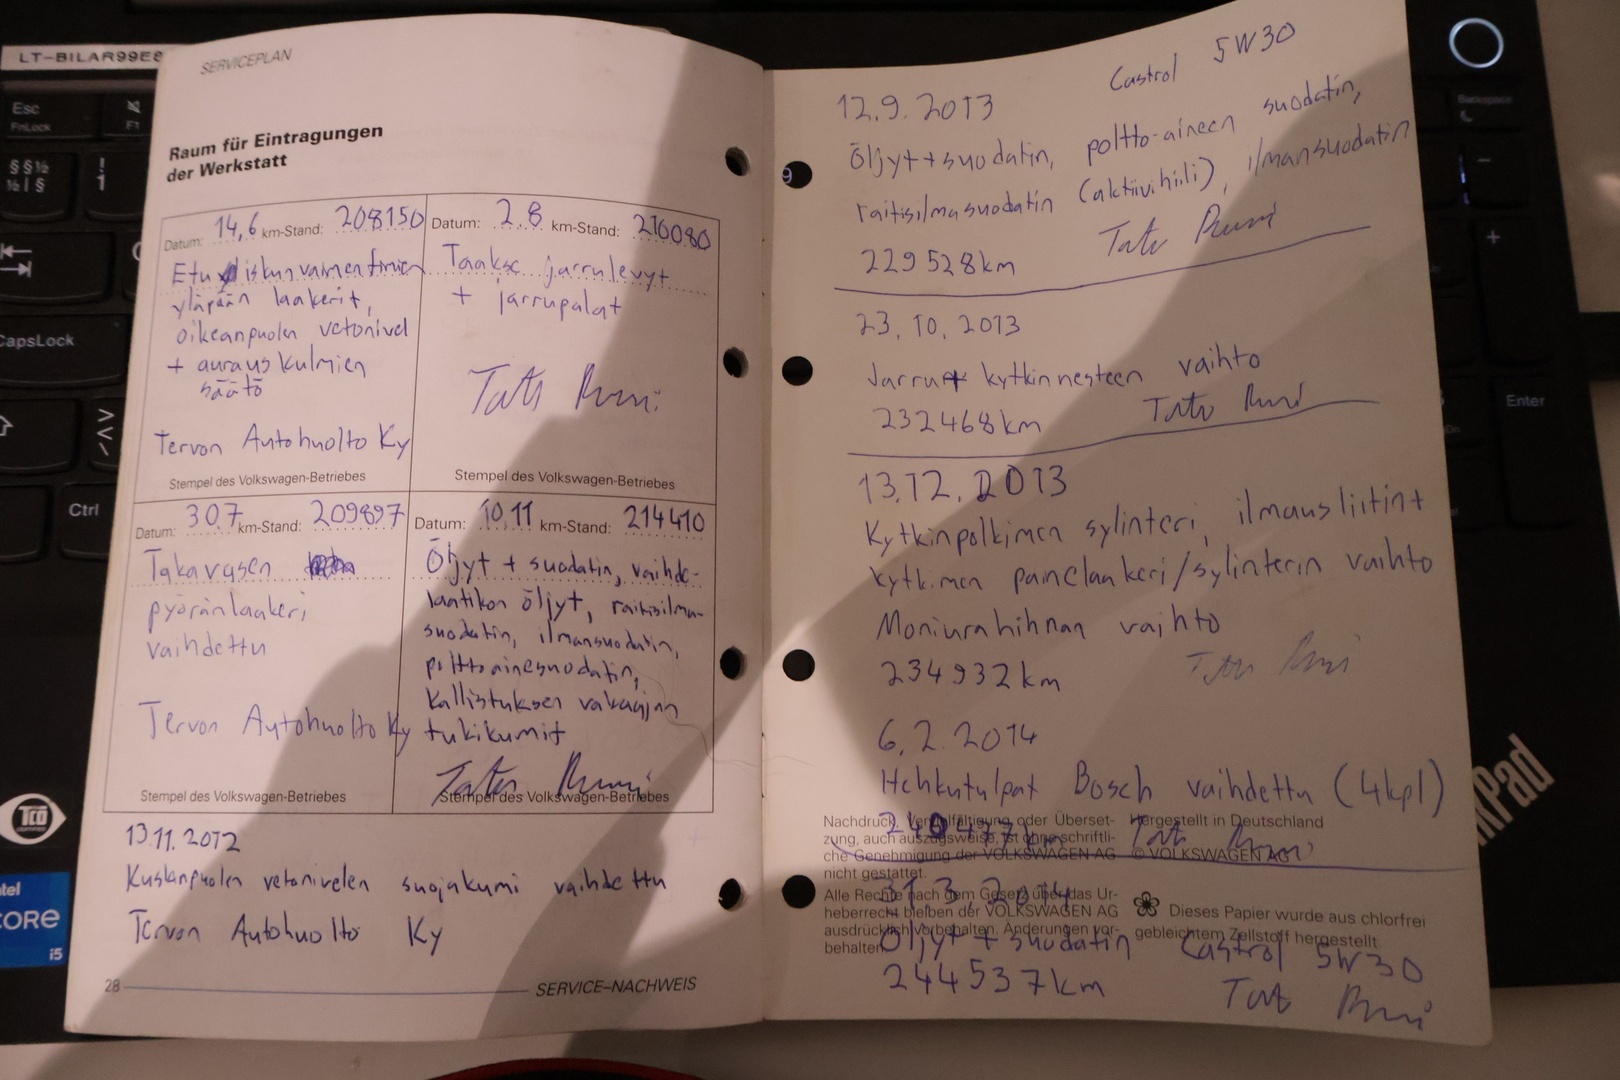 LT-BILAR99E8
Esc
FnLock
F1
§ § ½
½ | §
!
1
CapsLock
>
<
Ctrl
TCO
CERTIFIED
intel
CORE
i5
Backspace
Enter
ThinkPad
SERVICEPLAN
Raum für Eintragungen
der Werkstatt
Datum: 14,6 km-Stand: 208150
Etu iskunvaimentimien
yläpään laakerit,
oikeanpuolen vetonivel
+ aurauskulmien
säätö
Tervon Autohuolto Ky
Stempel des Volkswagen-Betriebes
Datum: 2.8 km-Stand: 210080
Taakse jarrulevyt
+ jarrupalat
Stempel des Volkswagen-Betriebes
Datum: 30.7 km-Stand: 209897
Takavasen
pyöränlaakeri
vaihdettu
Tervon Autohuolto Ky
Stempel des Volkswagen-Betriebes
Datum: 10.11 km-Stand: 214410
Öljyt + suodatin, vaihde-
laatikon öljyt, raitisilma-
suodatin, ilmansuodatin,
polttoainesuodatin,
kallistuksen vakaajan
tukikumit
Stempel des Volkswagen-Betriebes
13.11.2012
Kuskinpuolen vetonivelen suojakumi vaihdettu
Tervon Autohuolto Ky
28
SERVICE–NACHWEIS
9
Castrol 5W30
12.9.2013
Öljyt + suodatin, poltto-aineen suodatin,
raitisilmasuodatin (aktiivihiili), ilmansuodatin
229528km
23.10.2013
Jarru+ kytkinnesteen vaihto
232468km
13.12.2013
Kytkinpolkimen sylinteri, ilmausliitin+
kytkimen painelaakeri/sylinterin vaihto
Moniurahihnan vaihto
234932km
6.2.2014
Hehkutulpat Bosch vaihdettu (4kpl)
240477km
Nachdruck, Vervielfältigung oder Überset-
zung, auch auszugsweise, ist ohne schriftli-
che Genehmigung der VOLKSWAGEN AG
nicht gestattet.
Alle Rechte nach dem Gesetz über das Ur-
heberrecht bleiben der VOLKSWAGEN AG
ausdrücklich vorbehalten. Änderungen vor-
behalten.
Hergestellt in Deutschland
© VOLKSWAGEN AG
Dieses Papier wurde aus chlorfrei
gebleichtem Zellstoff hergestellt.
31.3.2014
Öljyt + suodatin Castrol 5W30
244537km